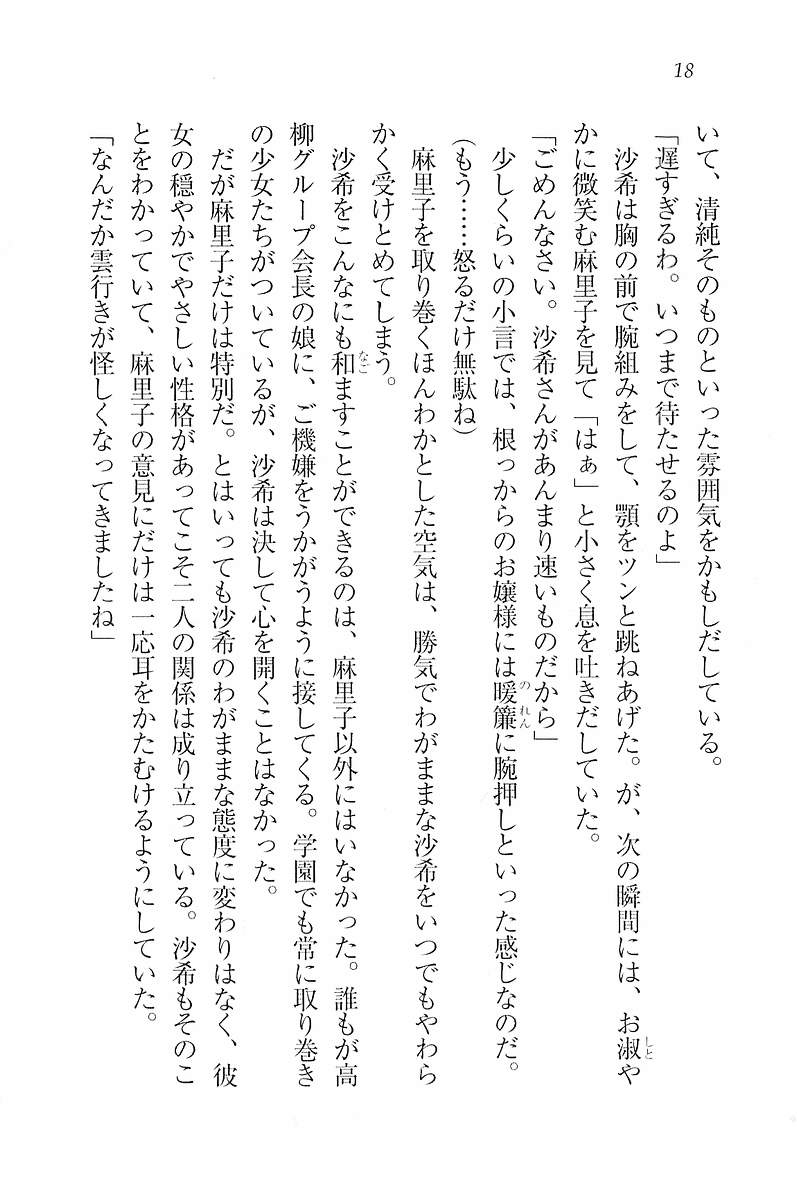 18
いて、清純そのものといった雰囲気をかもしだしている。
「遅すぎるわ。いつまで待たせるのよ」
沙希は胸の前で腕組みをして、顎をツンと跳ねあげた。が、次の瞬間には、お淑や
かに微笑む麻里子を見て「はぁ」と小さく息を吐きだしていた。
「ごめんなさい。沙希さんがあんまり速いものだから」
少しくらいの小言では、根っからのお嬢様には暖簾に腕押しといった感じなのだ。
(もう……怒るだけ無駄ね)
麻里子を取り巻くほんわかとした空気は、勝気でわがままな沙希をいつでもやわら
かく受けとめてしまう。
沙希をこんなにも和ますことができるのは、麻里子以外にはいなかった。誰もが高
柳グループ会長の娘に、ご機嫌をうかがうように接してくる。学園でも常に取り巻き
の少女たちがついているが、沙希は決して心を開くことはなかった。
だが麻里子だけは特別だ。とはいっても沙希のわがままな態度に変わりはなく、彼
女の穏やかでやさしい性格があってこそ二人の関係は成り立っている。沙希もそのこ
とをわかっていて、麻里子の意見にだけは一応耳をかたむけるようにしていた。
「なんだか雲行きが怪しくなってきましたね」